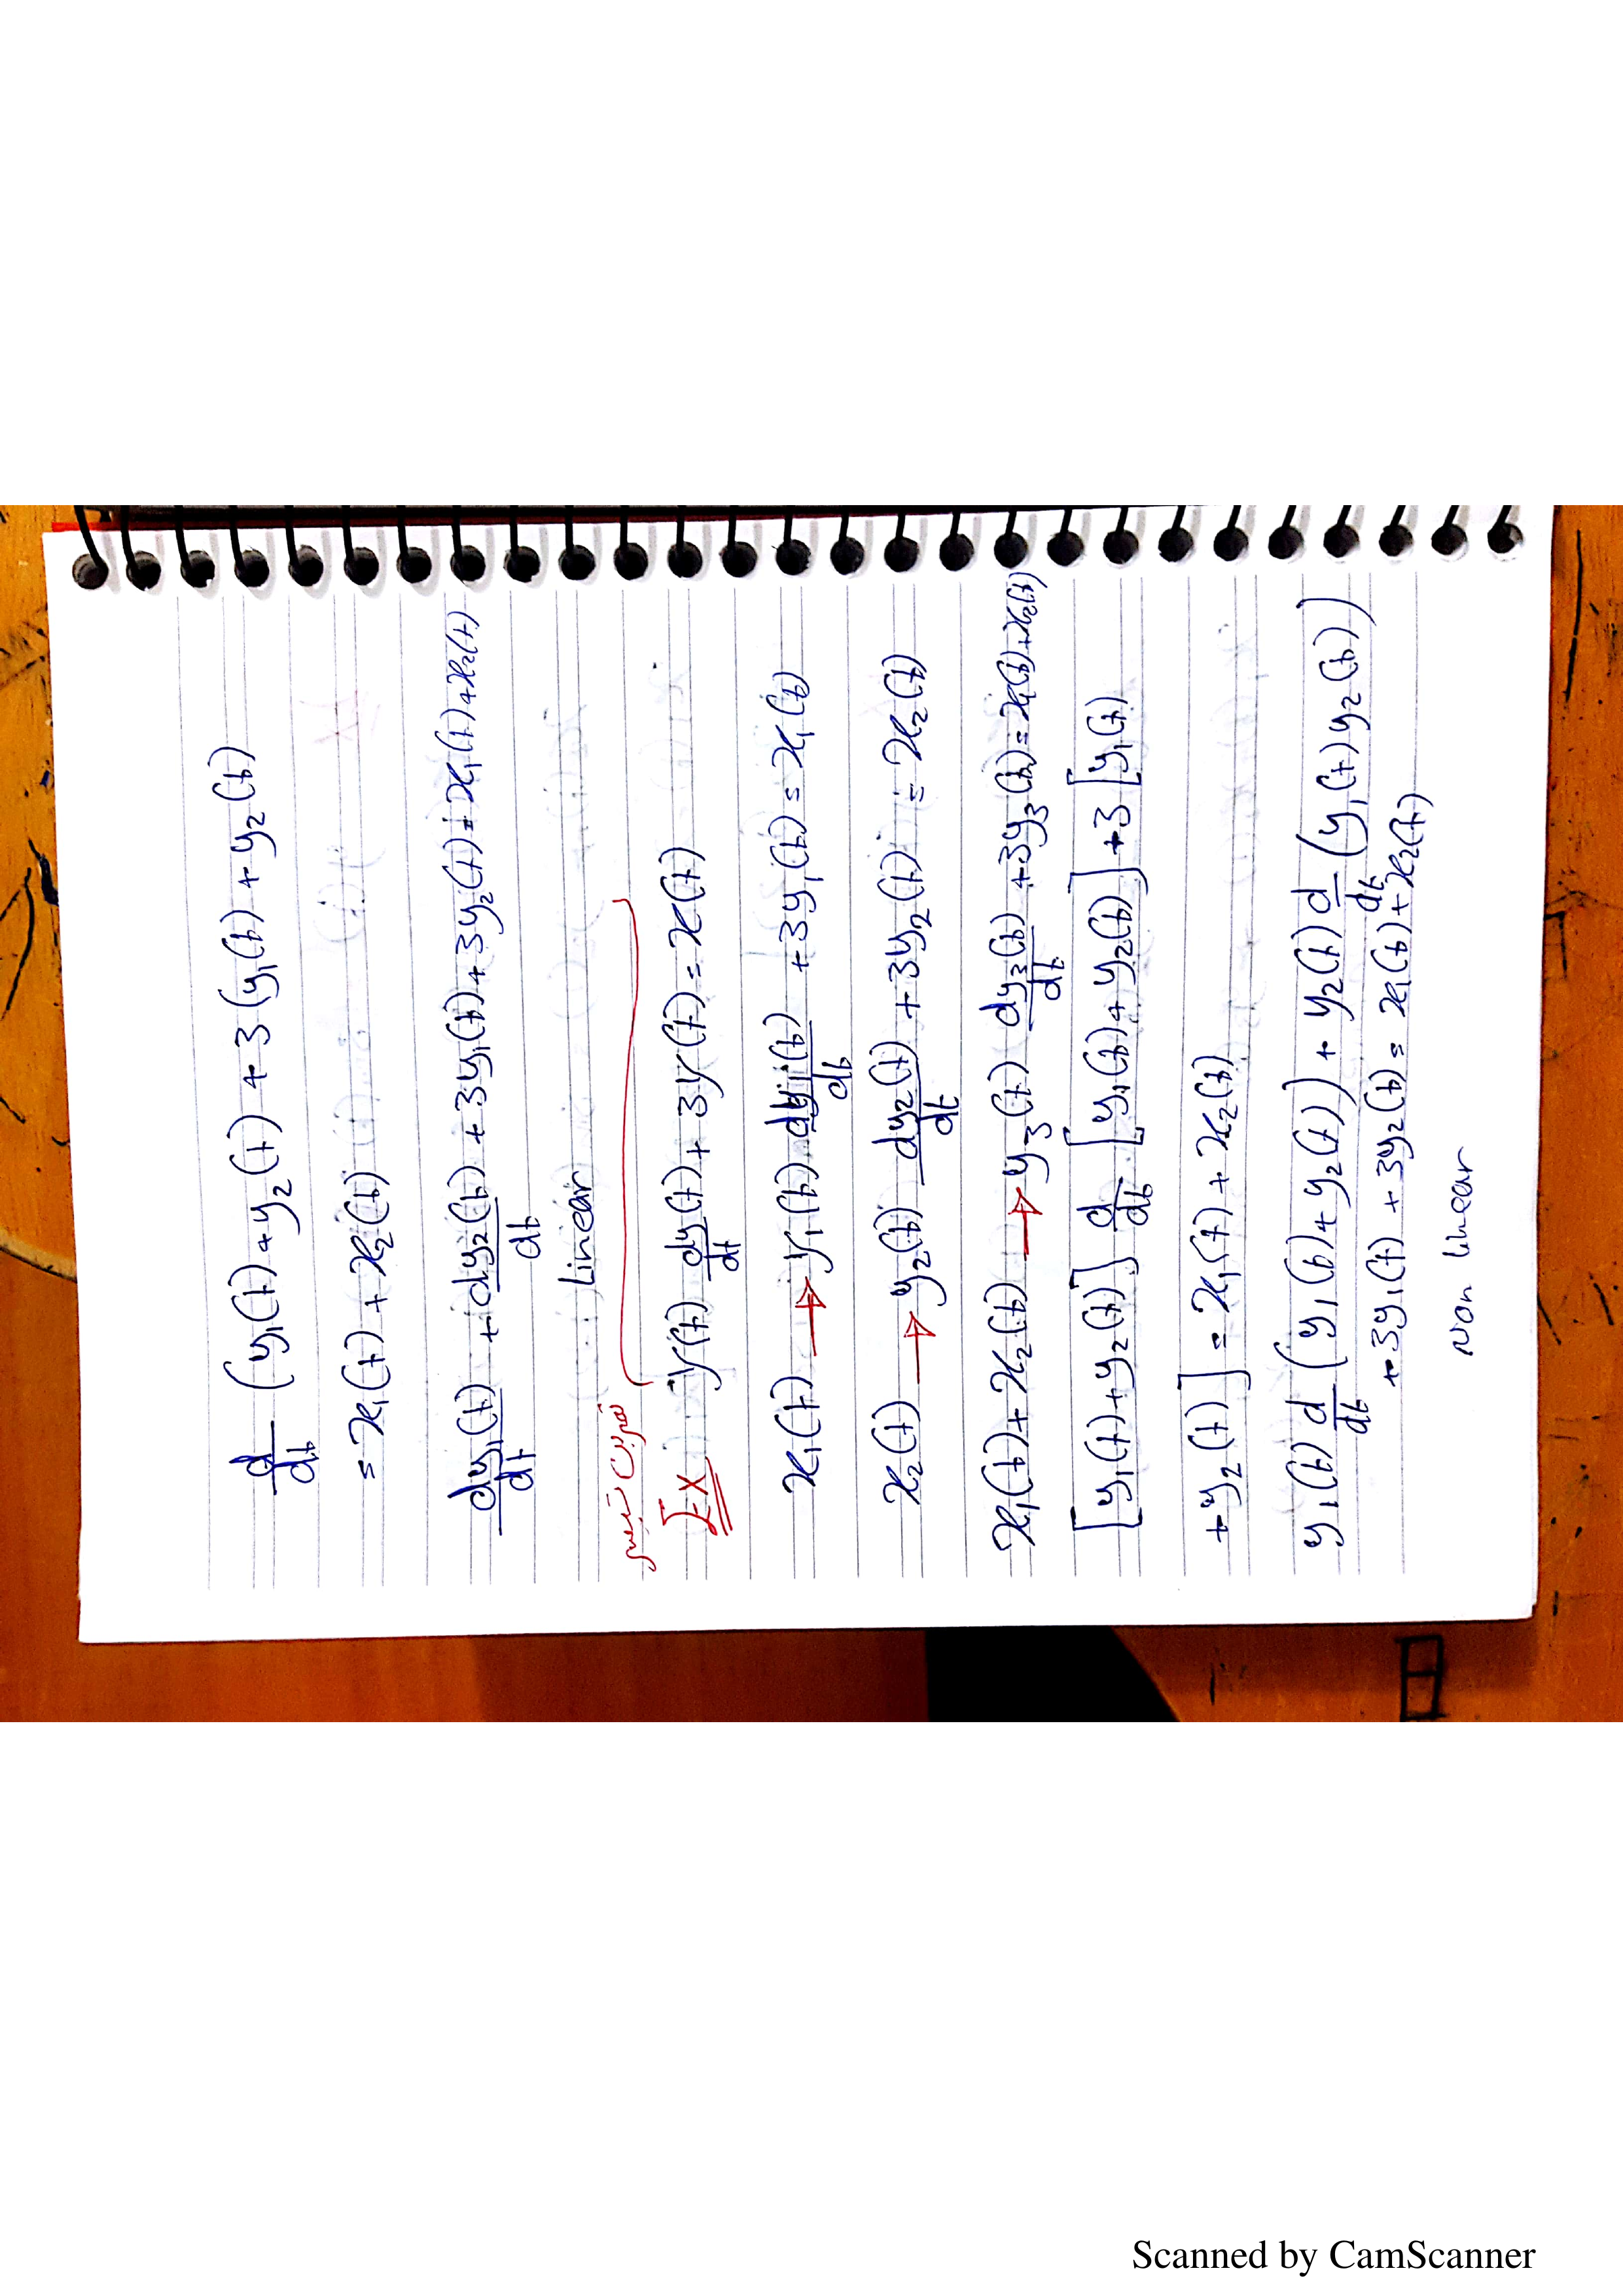 d/dt (y₁(t)+y₂(t) + 3 (y₁(t) + y₂(t)
= x₁(t) + x₂(t)
dy₁(t)/dt + dy₂(t)/dt + 3y₁(t) + 3y₂(t) = x₁(t)+x₂(t)
Linear
Ex y(t) dy(t)/dt + 3y(t) = x(t)
x₁(t) → y₁(t) dy₁(t)/dt + 3y₁(t) = x₁(t)
x₂(t) → y₂(t) dy₂(t)/dt + 3y₂(t) = x₂(t)
x₁(t) + x₂(t) → y₃(t) dy₃(t)/dt + 3y₃(t) = x₁(t)+x₂(t)
[y₁(t)+y₂(t)] d/dt [y₁(t)+y₂(t)] + 3 [y₁(t)
+y₂(t)] = x₁(t) + x₂(t)
y₁(t) d/dt (y₁(t)+y₂(t)) + y₂(t) d/dt (y₁(t) y₂(t))
+ 3y₁(t) + 3y₂(t) = x₁(t)+x₂(t)
Non linear
Scanned by CamScanner